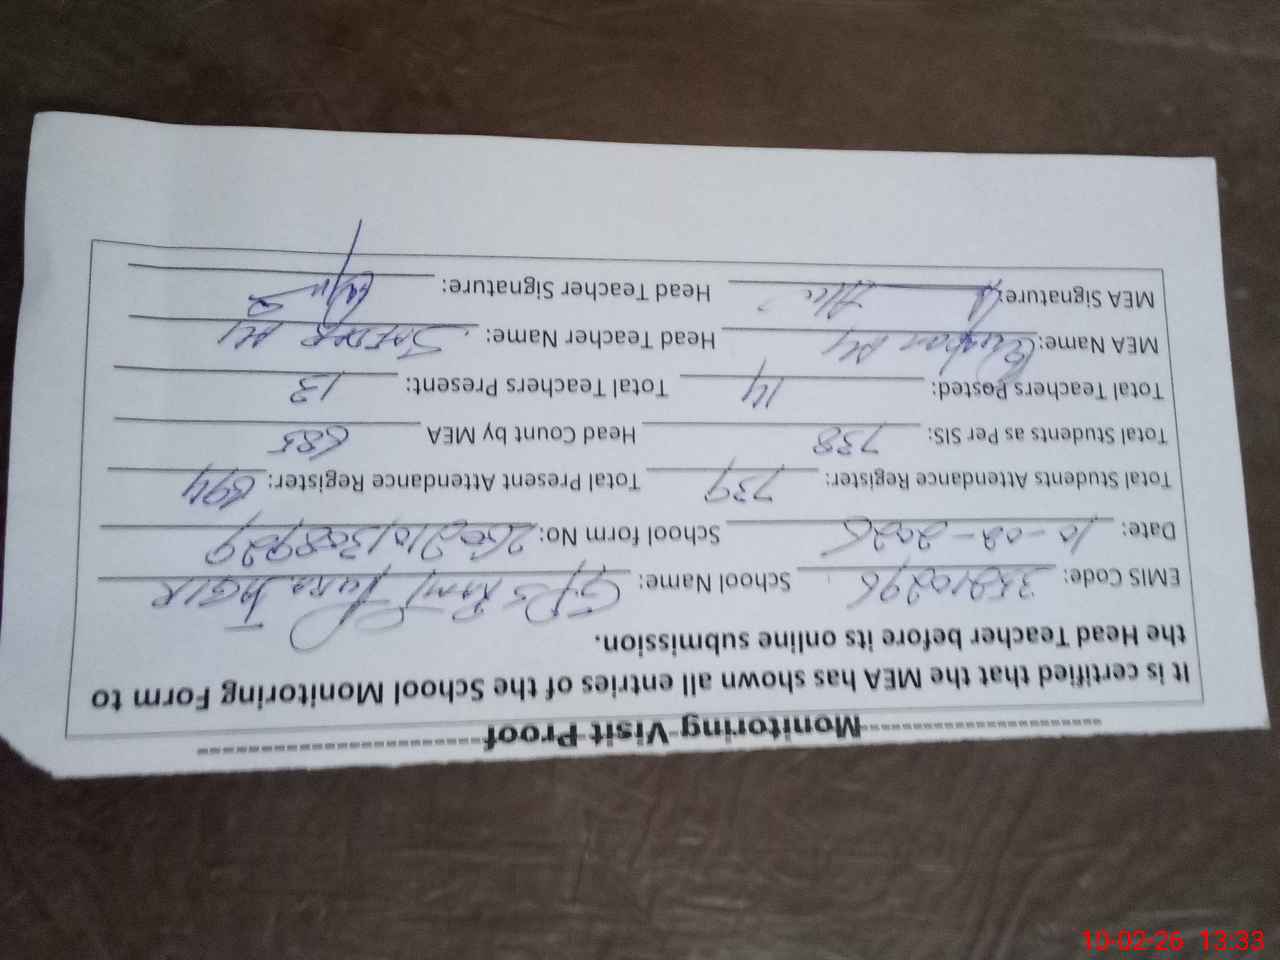 Monitoring Visit Proof
It is certified that the MEA has shown all entries of the School Monitoring Form to
the Head Teacher before its online submission.
EMIS Code: 35210296 School Name: GPS Rani Pura JAGIR
Date: 10-02-2026 School form No:
Total Students Attendance Register: 739 Total Present Attendance Register: 694
Total Students as Per SIS: 738 Head Count by MEA 685
Total Teachers Posted: 14 Total Teachers Present: 13
MEA Name: Ali Head Teacher Name: SAFDAR Ali
MEA Signature: Head Teacher Signature:
10-02-26 13:33